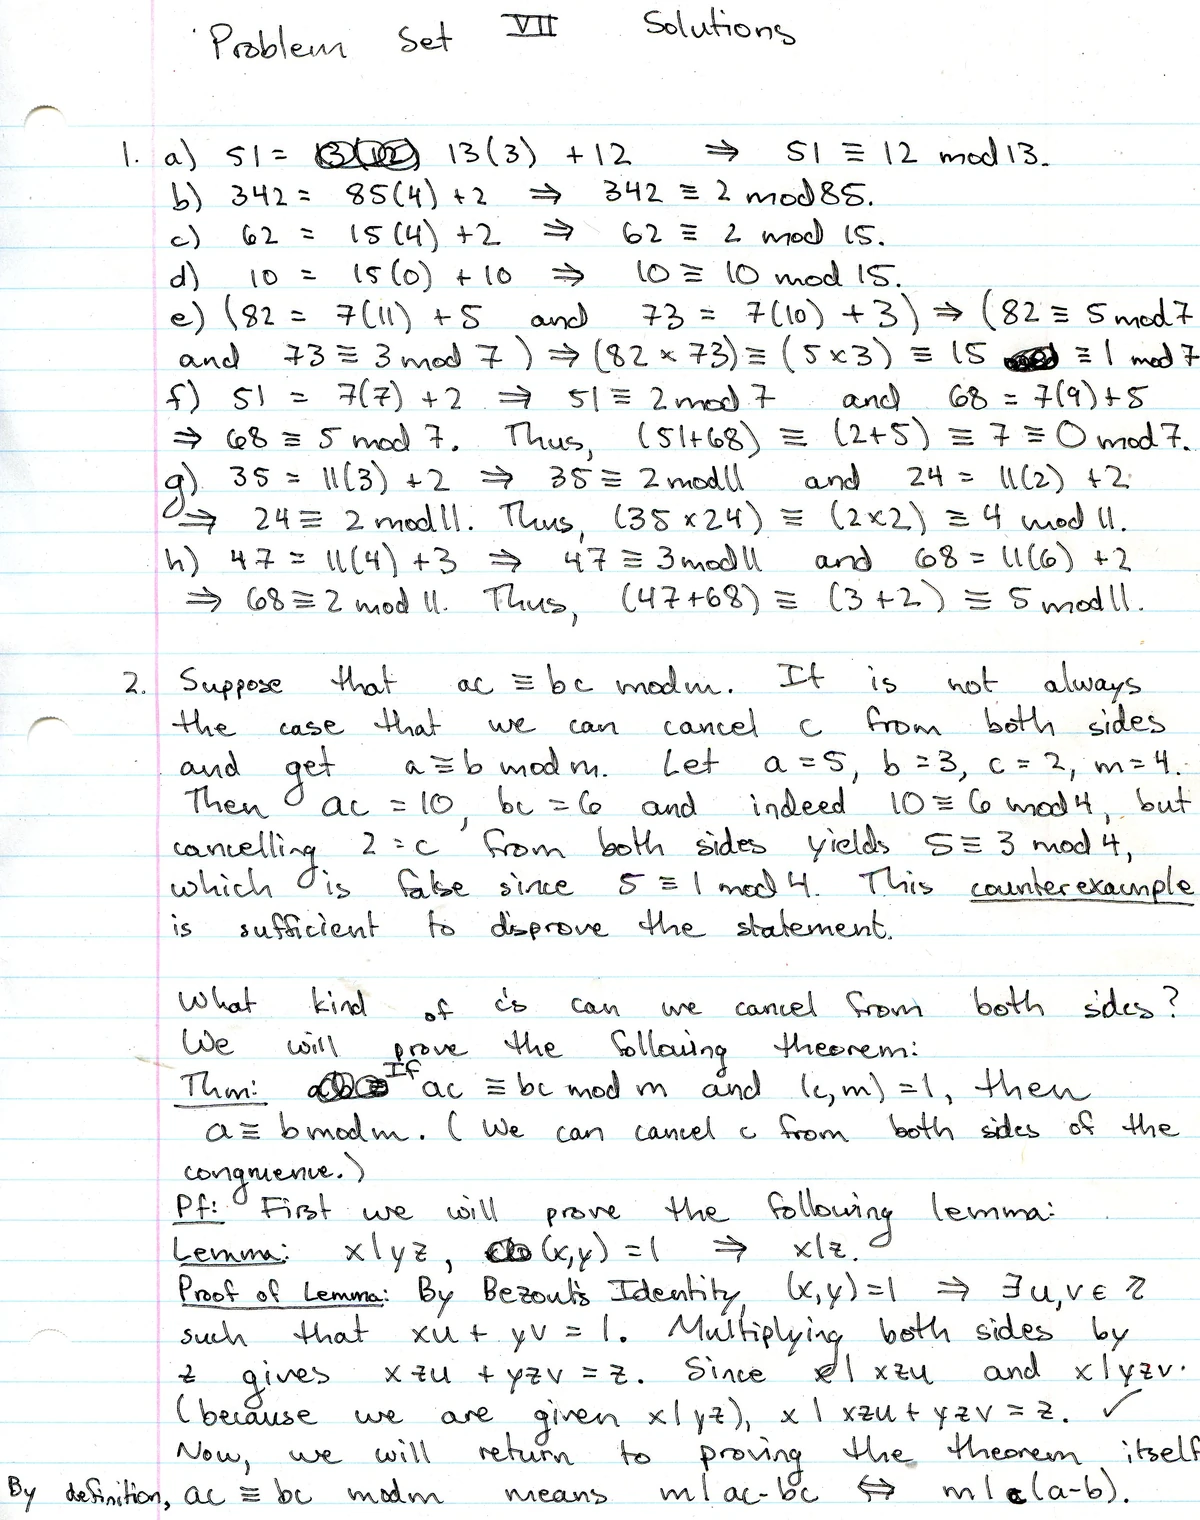 Problem Set VII Solutions
1. a) 51 = 13(3) + 12 ⇒ 51 ≡ 12 mod 13.
b) 342 = 85(4) + 2 ⇒ 342 ≡ 2 mod 85.
c) 62 = 15(4) + 2 ⇒ 62 ≡ 2 mod 15.
d) 10 = 15(0) + 10 ⇒ 10 ≡ 10 mod 15.
e) (82 = 7(11) + 5 and 73 = 7(10) + 3) ⇒ (82 ≡ 5 mod 7
and 73 ≡ 3 mod 7) ⇒ (82 × 73) ≡ (5×3) ≡ 15 ≡ 1 mod 7
f) 51 = 7(7) + 2 ⇒ 51 ≡ 2 mod 7 and 68 = 7(9) + 5
⇒ 68 ≡ 5 mod 7. Thus, (51+68) ≡ (2+5) ≡ 7 ≡ 0 mod 7.
g) 35 = 11(3) + 2 ⇒ 35 ≡ 2 mod 11 and 24 = 11(2) + 2
⇒ 24 ≡ 2 mod 11. Thus, (35 × 24) ≡ (2×2) ≡ 4 mod 11.
h) 47 = 11(4) + 3 ⇒ 47 ≡ 3 mod 11 and 68 = 11(6) + 2
⇒ 68 ≡ 2 mod 11. Thus, (47+68) ≡ (3+2) ≡ 5 mod 11.
2. Suppose that ac ≡ bc mod m. It is not always
the case that we can cancel c from both sides
and get a ≡ b mod m. Let a = 5, b = 3, c = 2, m = 4.
Then ac = 10, bc = 6 and indeed 10 ≡ 6 mod 4, but
cancelling 2 = c from both sides yields 5 ≡ 3 mod 4,
which is false since 5 ≡ 1 mod 4. This counterexample
is sufficient to disprove the statement.
What kind of c's can we cancel from both sides?
We will prove the following theorem:
Thm: If ac ≡ bc mod m and (c,m) = 1, then
a ≡ b mod m. (We can cancel c from both sides of the
congruence.)
Pf: First we will prove the following lemma:
Lemma: x|yz, (x,y) = 1 ⇒ x|z.
Proof of Lemma: By Bezout's Identity, (x,y) = 1 ⇒ ∃ u,v ∈ ℤ
such that xu + yv = 1. Multiplying both sides by
z gives xzu + yzv = z. Since x | xzu and x | yzv
(because we are given x|yz), x | xzu + yzv = z. ✓
Now, we will return to proving the theorem itself
By definition, ac ≡ bc mod m means m|ac-bc ⇔ m|c(a-b).